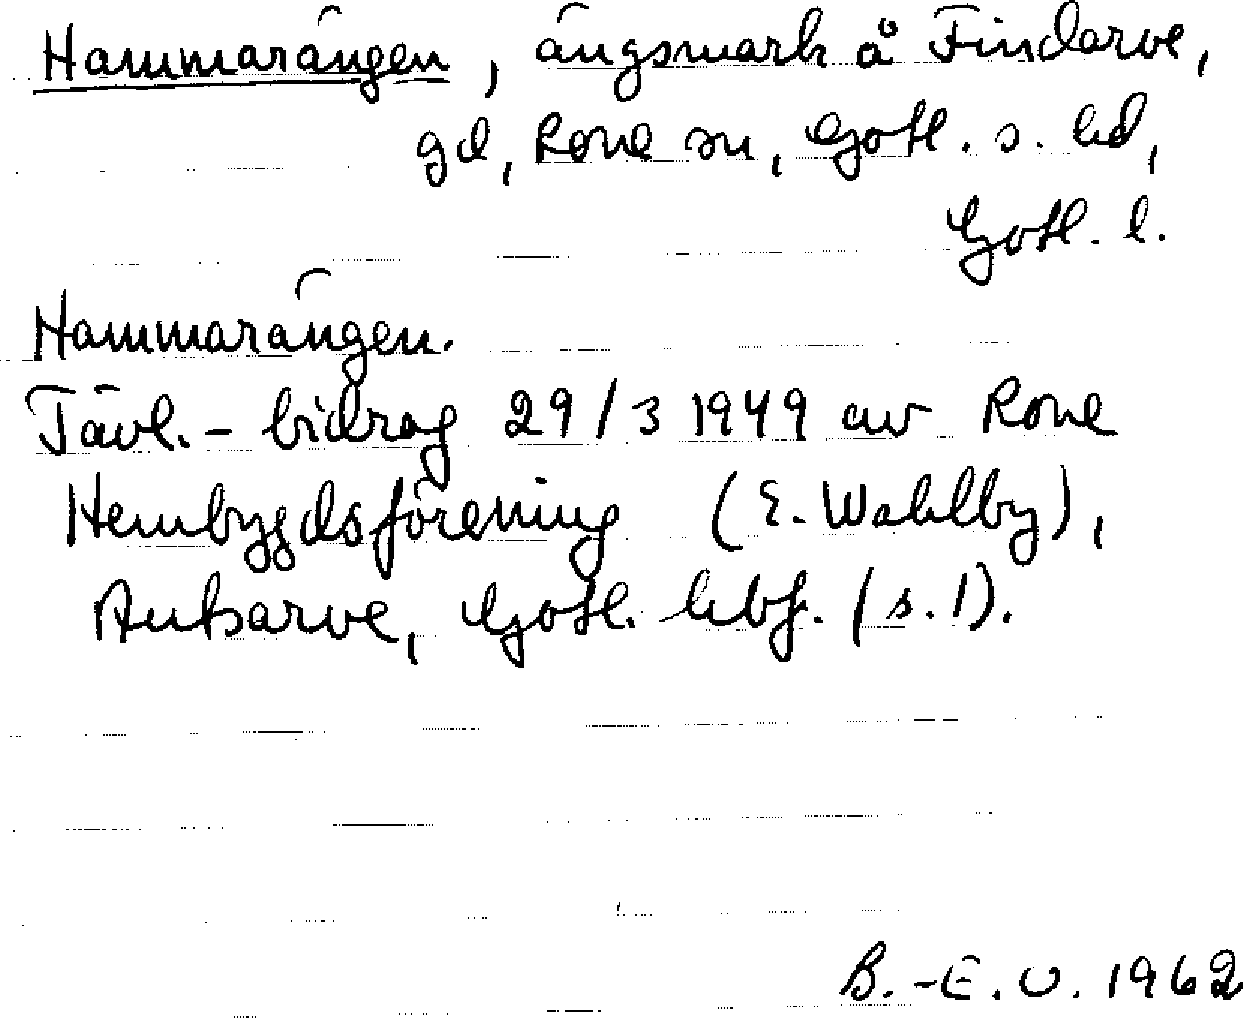 Hammarängen, ängsmark å Findarve,
gd, Rone sn, Gotl. s. hd,
Gotl. l.
Hammarängen.
Tävl.-bidrag 29/3 1949 av Rone
Hembygdsförening (E. Wahlby),
Auksarve, Gotl. hbf. (s. 1).
B.-E. U. 1962